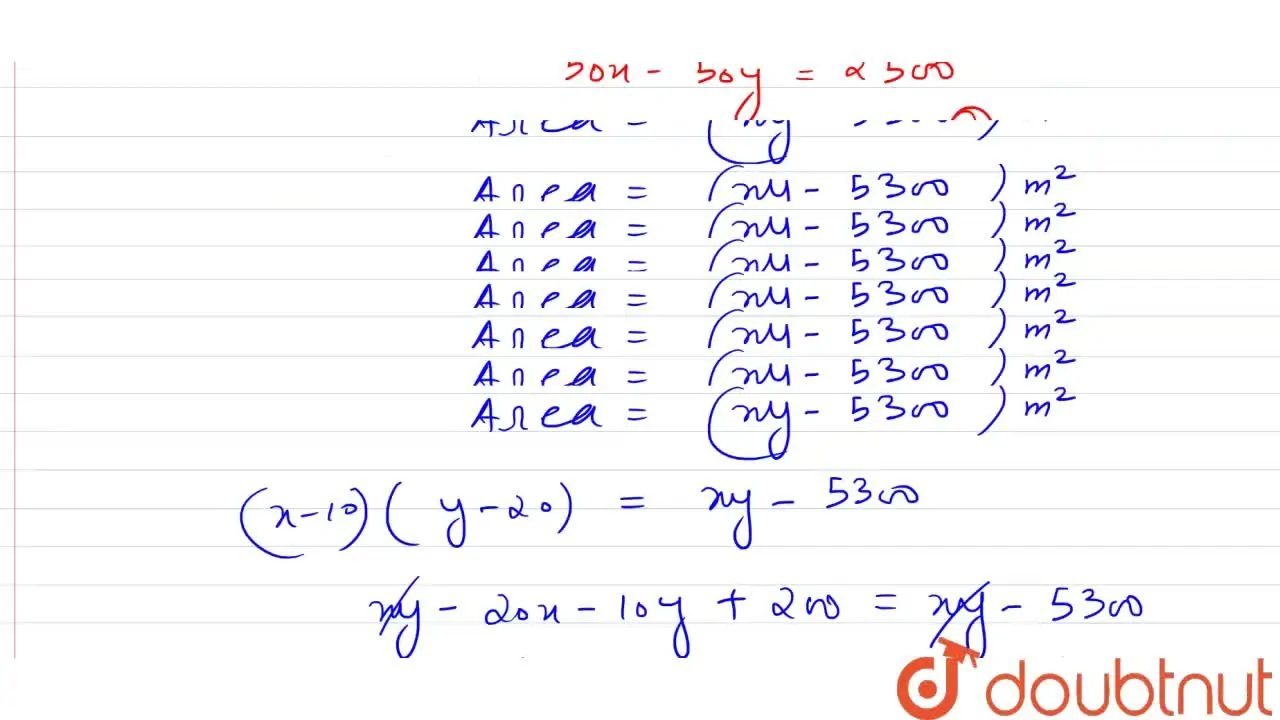 50x - 50y = 2500
Area = (xy - 5300) m²
Area = (xy - 5300) m²
Area = (xy - 5300) m²
Area = (xy - 5300) m²
Area = (xy - 5300) m²
Area = (xy - 5300) m²
Area = (xy - 5300) m²
(x-10)(y-20) = xy - 5300
xy - 20x - 10y + 200 = xy - 5300
doubtnut